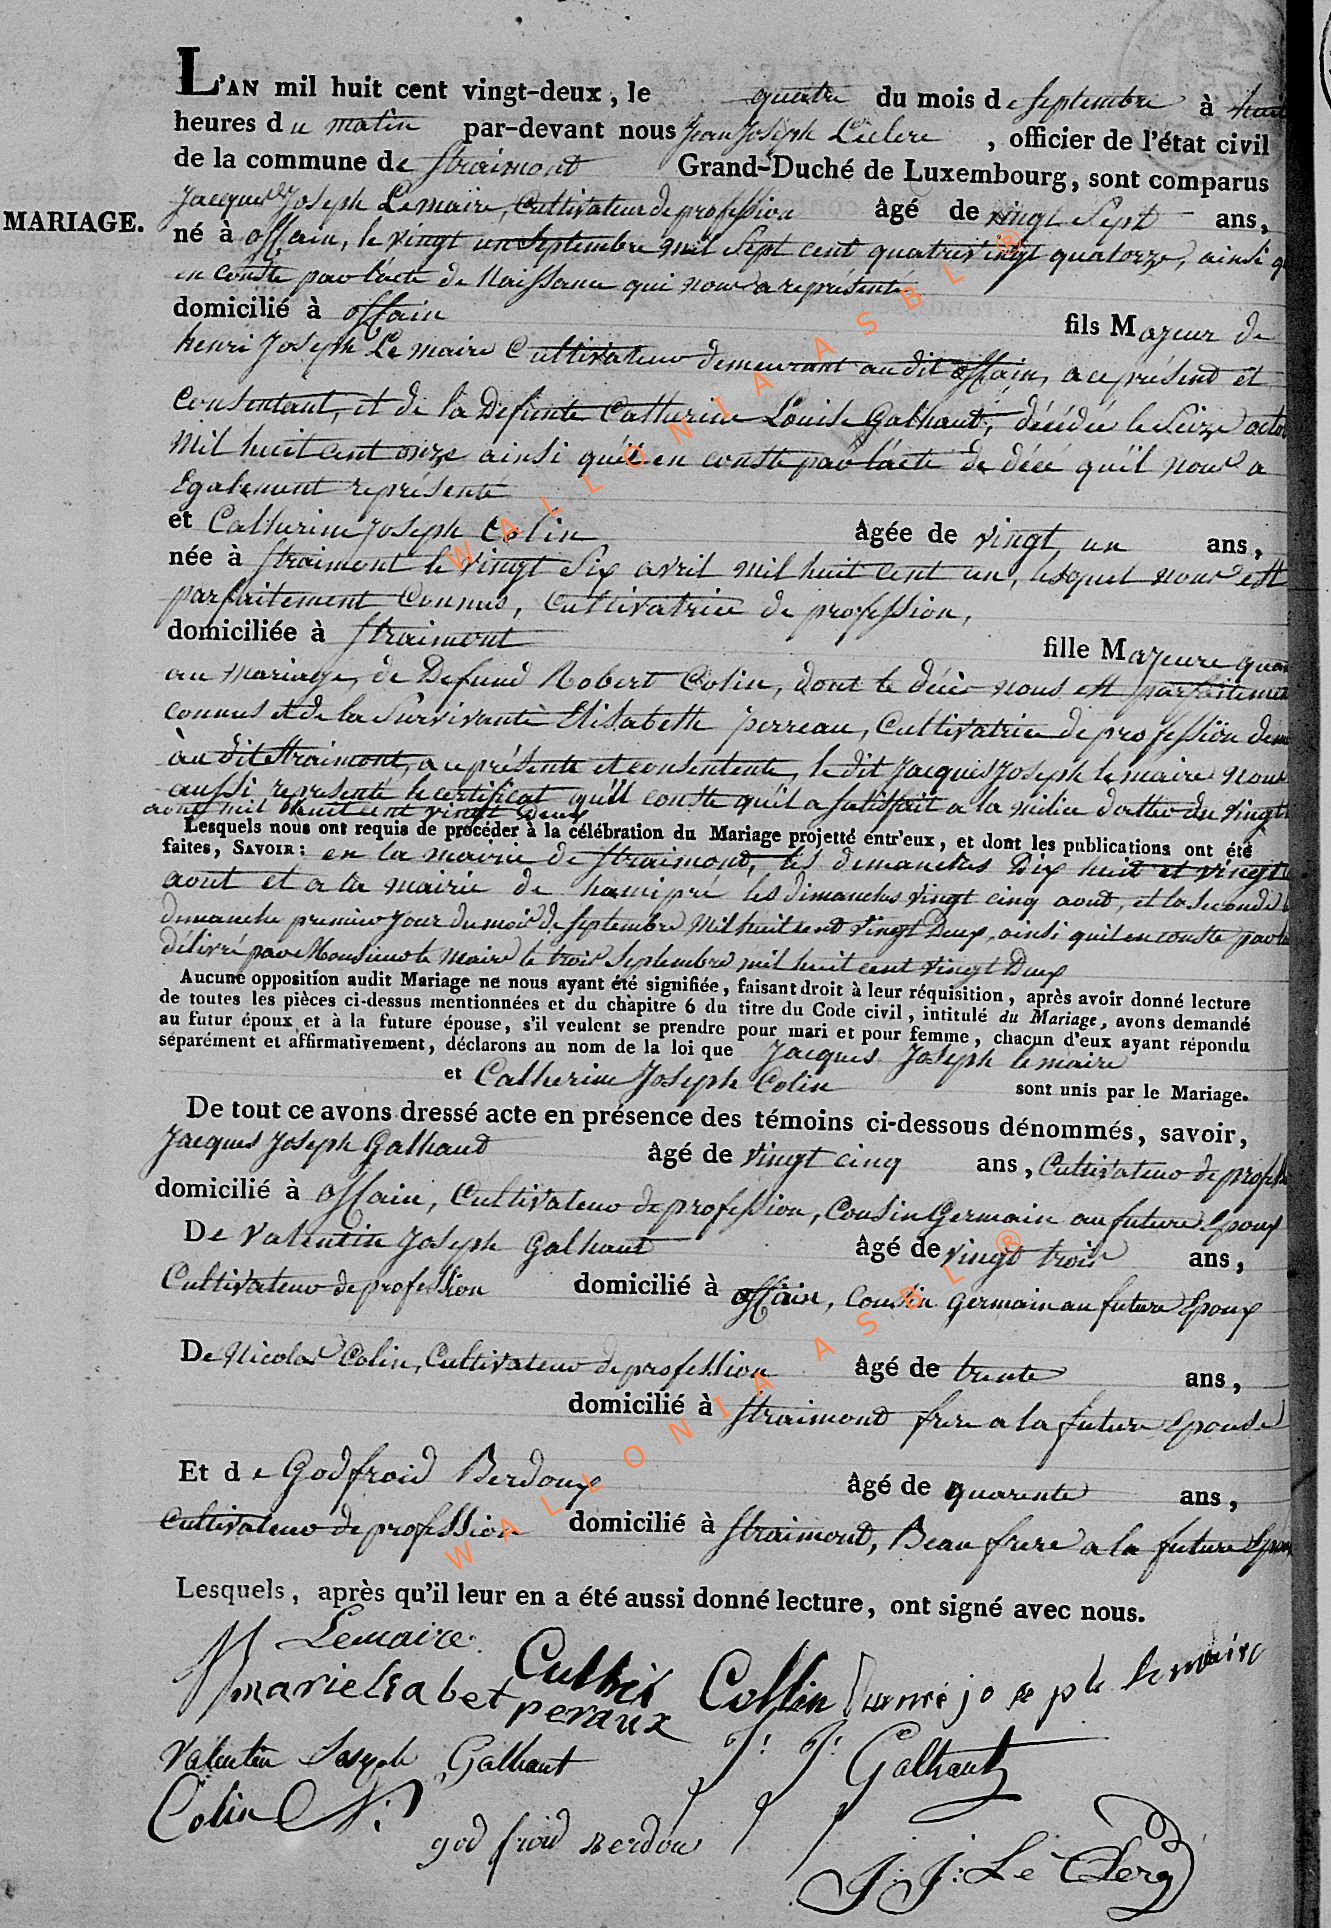 L'AN mil huit cent vingt-deux, le quatre du mois de Septembre à huit
heures du matin par-devant nous Jean Joseph Leclere, officier de l'état civil
de la commune de Straimont Grand-Duché de Luxembourg, sont comparus
Jacques Joseph Lemaire, Cultivateur de profession âgé de vingt Sept ans,
MARIAGE.
né à offain, le vingt un Septembre mil Sept cent quatre vingt quatorze, ainsi qu
en conste par l'acte de Naissance qui nous a représenté
domicilié à offain fils Majeur de
henri Joseph Le maire Cultivateur demeurant au dit offain, a ce présend et
Consentant, et de la Defunte Catherine Louise Galhaut, décédée le Seize octo
Mil huit cent onze ainsi qu'il en conste par l'acte de dèce qu'il nous a
Egalement représenté
et Catherine Joseph Colin âgée de vingt un ans,
née à Straimont le vingt Six avril mil huit cent un, lesquel nous est
parfaitement Connus, Cultivatrice de profession,
domiciliée à Straimont fille Majeure quan
au mariage, de Defund Robert Colin, dont le décès nous est parfaitemen
connus et de la Survivante Elisabeth perreau, Cultivatrice de profession dem
àu dit Straimont, a ce présente et consentente, le dit Jacques Joseph le maire nous
aussi représenté le certificat qu'il conste qu'il a Satisfait a la milice datter du vingt
aout mil huit cent vingt Deux
Lesquels nous ont requis de procéder à la célébration du Mariage projetté entr'eux, et dont les publications ont été
faites, SAVOIR: en la mairie de Straimond, les dimanches Dix huit et vingt
aout et a la mairie de hamipré les dimanches vingt cinq aout, et la Seconde
dimanche premier Jour du mois de Septembre Mil huit cent vingt Deux, ainsi quil en conste par
délivré par Monsieur le maire le trois Septembre mil huit cent vingt Deux
Aucune opposition audit Mariage ne nous ayant été signifiée, faisant droit à leur réquisition, après avoir donné lecture
de toutes les pièces ci-dessus mentionnées et du chapitre 6 du titre du Code civil, intitulé du Mariage, avons demandé
au futur époux et à la future épouse, s'il veulent se prendre pour mari et pour femme, chacun d'eux ayant répondu
séparément et affirmativement, déclarons au nom de la loi que Jacques Joseph lemaire
et Catherine Joseph Colin sont unis par le Mariage.
De tout ce avons dressé acte en présence des témoins ci-dessous dénommés, savoir,
Jacques Joseph Galhaud âgé de vingt cinq ans, Cultivateur de profess
domicilié à offain, Cultivateur de profession, Cousin Germain au future Epoux
De Valentin Joseph Galhaut âgé de vingt trois ans,
Cultivateur de profession domicilié à offain, Cousin germain au future Epoux
De Nicolas Colin, Cultivateur de profession âgé de trente ans,
domicilié à Straimond frere a la future Epouse
Et de Godfroid Berdoux âgé de quarente ans,
Cultivateur de profession domicilié à Straimond, Beau frere a la future Epou
Lesquels, après qu'il leur en a été aussi donné lecture, ont signé avec nous.
Lemaire
Collin joseph lemaire
peraux
Valentin Joseph Galhaut J. J. Galhaut
Colin N.
god froid Berdou
J. J. Le Clerq
WALLONIA ASBL ®
WALLONIA ASBL ®